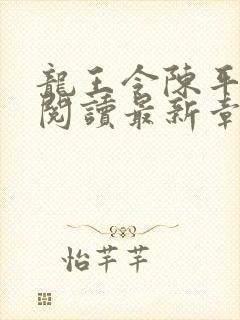 龍王令陳平
閱讀最新章
怡芊芊